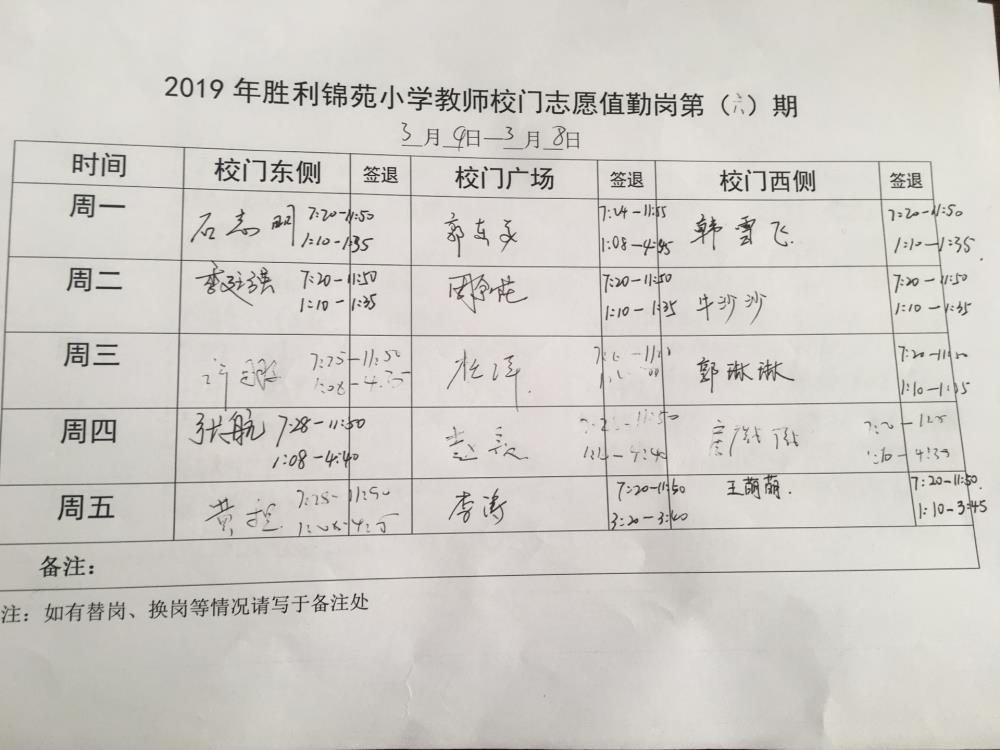 2019年胜利锦苑小学教师校门志愿值勤岗第（六）期
3月4日—3月8日
时间 校门东侧 签退 校门广场 签退 校门西侧 签退
周一 石志明 7:20-11:50 郭东文 7:24-11:55 韩雪飞. 7:20-11:50
1:10-1:35 1:08-4:45 1:10-1:35
周二 强 7:20-11:50 周 7:20-11:50 牛沙沙 7:20-11:50
1:10-1:35 1:10-1:35 1:10-1:35
周三 许 7:25-11:50 杜洋 郭琳琳 7:20-11:20
1:08-4:35 1:10-1:35
周四 张航 7:28-11:50
1:08-4:40 1:10-4:35
周五 黄 7:28-11:50 李涛 7:20-11:50 王萌萌. 7:20-11:50
3:20-3:40 1:10-3:45
备注：
注：如有替岗、换岗等情况请写于备注处